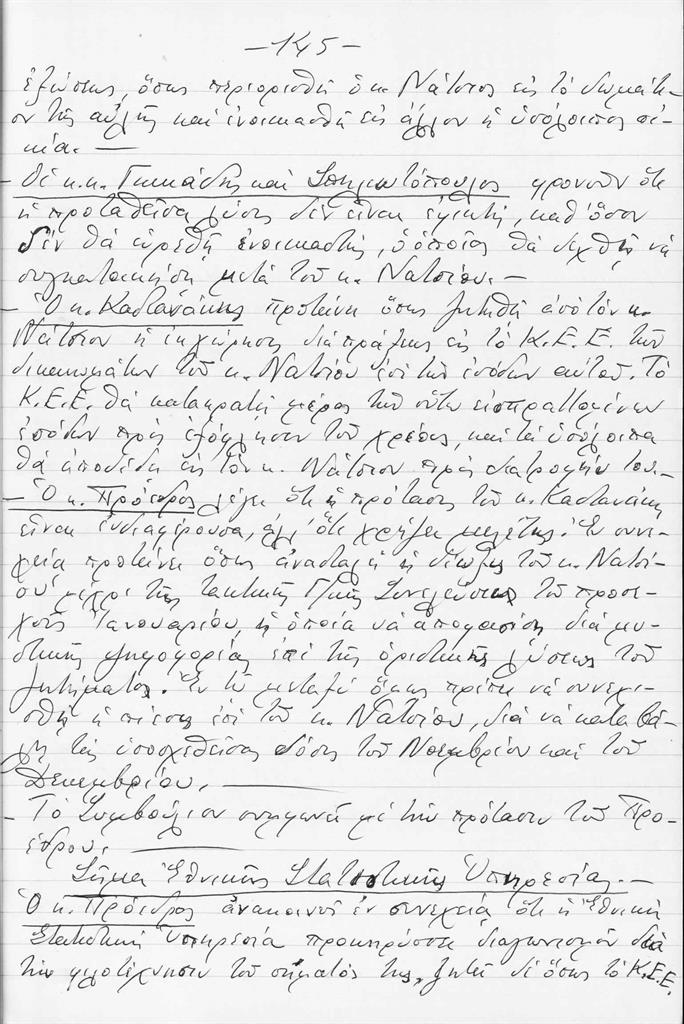 -145-
ἐξώσεως, ὅπως περιορισθῇ ὁ κ. Νάτσιος εἰς τό δωμάτι-
ον τῆς αὐλῆς καί ἐνοικιασθῇ εἰς ἄλλον ἡ ὑπόλοιπος οἰ-
κία. —
- Οἱ κ.κ. Γκικάδης καί Σπηλιωτόπουλος φρονοῦν ὅτι
ἡ προταθεῖσα λύσις δέν εἶναι ἐφικτή, καθ' ὅσον
δέν θά εὑρεθῇ ἐνοικιαστής, ὁ ὁποῖος θά δεχθῇ νά
συγκατοικήσῃ μετά τοῦ κ. Νατσίου. -
- Ὁ κ. Καστανάκης προτείνει ὅπως ζητηθῇ ἀπό τόν κ.
Νάτσιον ἡ ἐκχώρησις διά πράξεως εἰς τό Κ.Ε.Ε. τῶν
δικαιωμάτων τοῦ κ. Νατσίου ἐπί τῶν ἐσόδων αὐτοῦ. Τό
Κ.Ε.Ε. θά κατακρατῇ μέρος τῶν οὕτω εἰσπραττομένων
ἐσόδων πρός ἐξόφλησιν τοῦ χρέους, καί τά ὑπόλοιπα
θά ἀποδίδῃ εἰς τόν κ. Νάτσιον πρός διατροφήν του. -
- Ὁ κ. Πρόεδρος λέγει ὅτι ἡ πρότασις τοῦ κ. Καστανάκη
εἶναι ἐνδιαφέρουσα, ἀλλ' ὅτι χρήζει μελέτης. Ἐν συνε-
χείᾳ προτείνει ὅπως ἀνασταλῇ ἡ δίωξις τοῦ κ. Νατσί-
ου μέχρι τῆς τακτικῆς Γ/κῆς Συνελεύσεως τοῦ προσε-
χοῦς Ἰανουαρίου, ἡ ὁποία νά ἀποφασίσῃ διά μυ-
στικῆς ψηφοφορίας ἐπί τῆς ὁριστικῆς λύσεως τοῦ
ζητήματος. Ἐν τῷ μεταξύ ὅμως πρέπει νά συνεχι-
σθῇ ἡ πίεσις ἐπί τοῦ κ. Νατσίου, διά νά καταβά-
λῃ τάς ὑποσχεθείσας δόσεις τοῦ Νοεμβρίου καί τοῦ
Δεκεμβρίου. —
- Τό Συμβούλιον συμφωνεῖ μέ τήν πρότασιν τοῦ Προ-
έδρου. —
Σῆμα Ἐθνικῆς Στατιστικῆς Ὑπηρεσίας. -
Ὁ κ. Πρόεδρος ἀνακοινοῖ ἐν συνεχείᾳ ὅτι ἡ Ἐθνική
Στατιστική Ὑπηρεσία προκηρύσσει διαγωνισμόν διά
τήν φιλοτέχνησιν τοῦ σήματός της, ζητεῖ δέ ὅπως τό Κ.Ε.Ε.